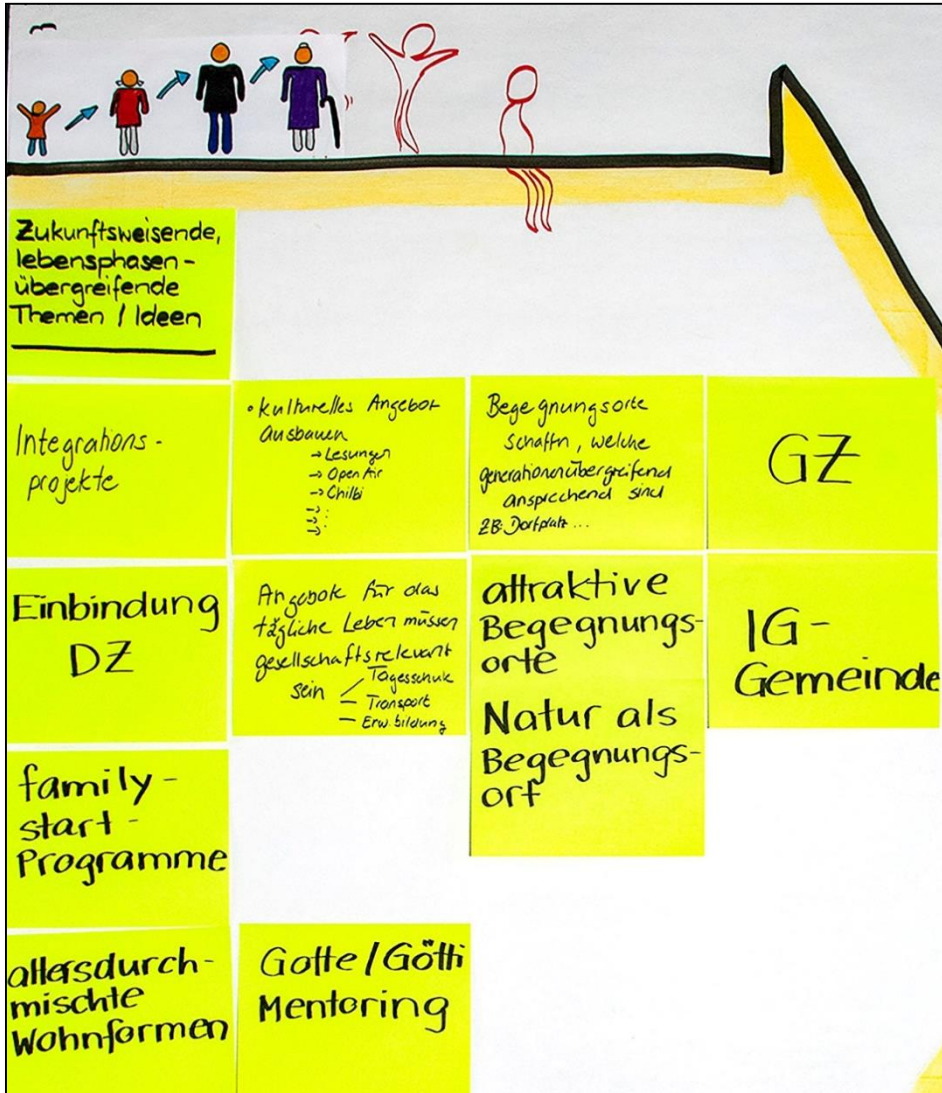 Zukunftsweisende,
lebensphasen-
übergreifende
Themen / Ideen
Integrations-
projekte
• kulturelles Angebot
ausbauen
→ Lesungen
→ Open Air
→ Chilbi
→ :
→ :
→
Begegnungsorte
schaffn, welche
generationenübergreifend
ansprechend sind
ZB: Dorfplatz...
GZ
Einbindung
DZ
Angebote für das
tägliche Leben müssen
gesellschaftsrelevant
sein – Tagesschule
– Transport
– Erw.bildung
attraktive
Begegnungs-
orte
Natur als
Begegnungs-
ort
IG-
Gemeinde
family-
start-
Programme
altersdurch-
mischte
Wohnformen
Gotte/Götti
Mentoring